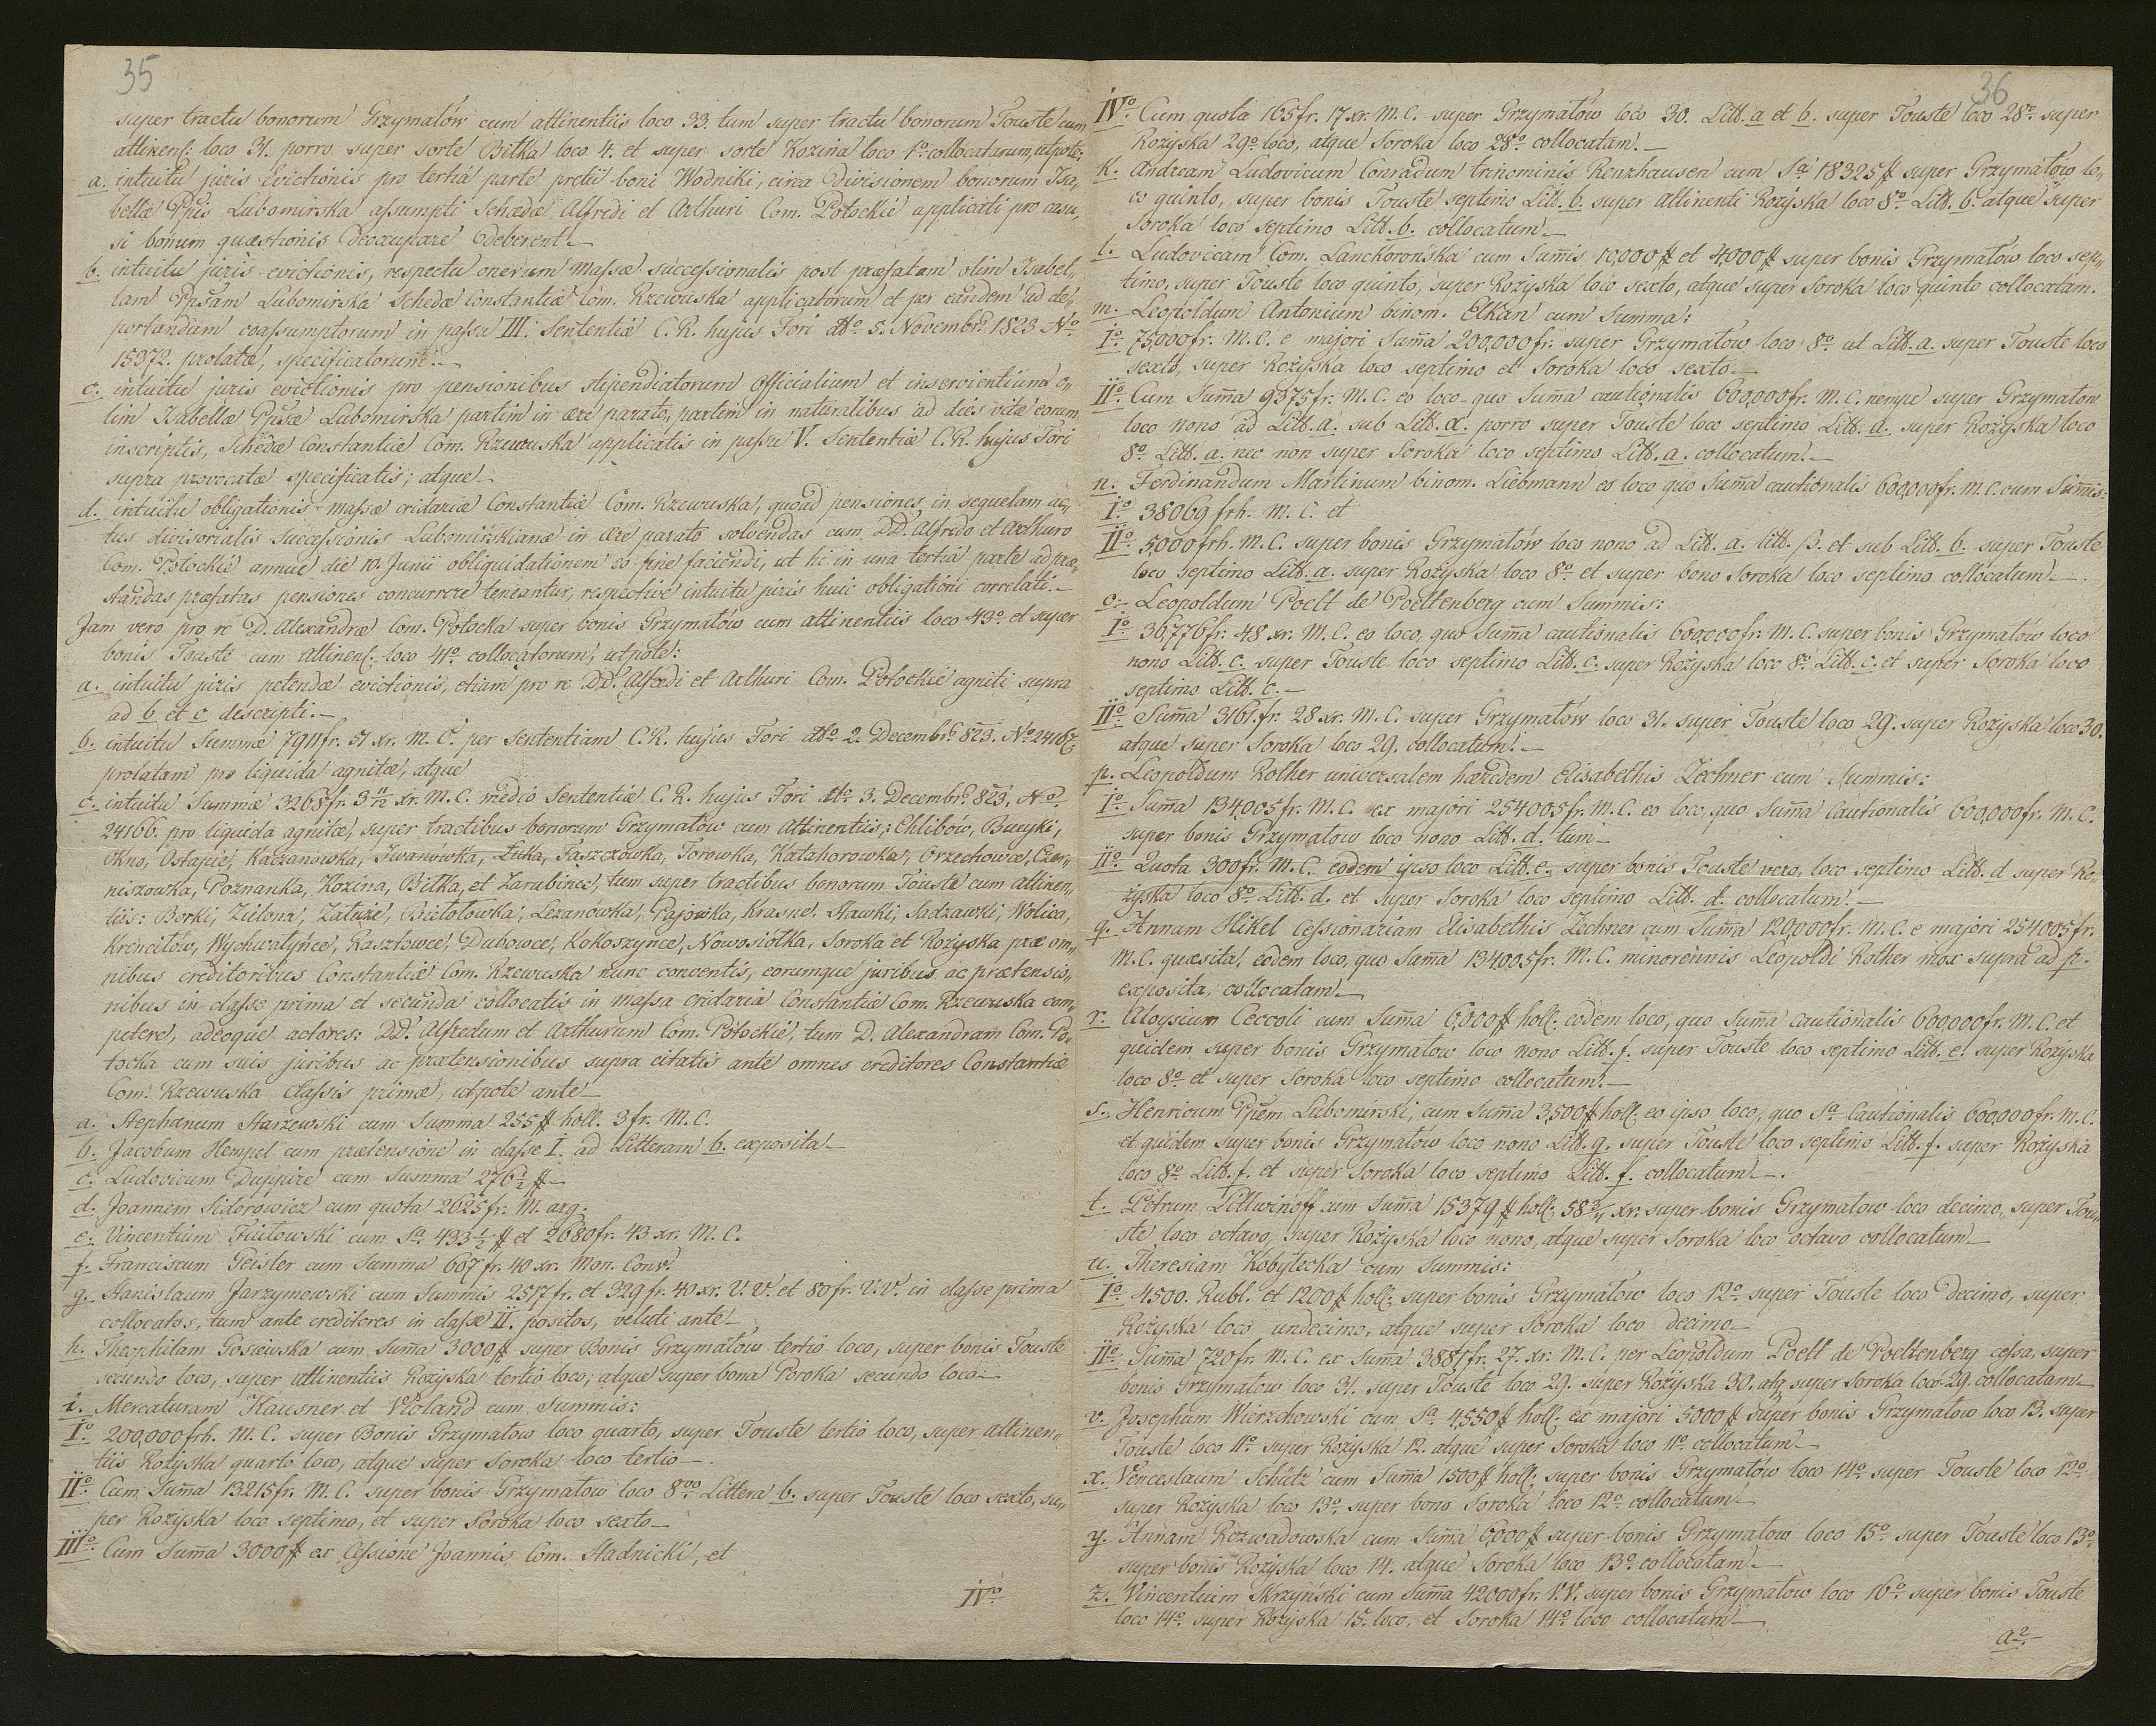 35
super tractu bonorum Grzymałów cum attinentiis loco 33. tum super tractu bonorum Touste cum
attinens: loco 31. porro super sorte Bitka loco 4. et super sorte Kozina loco 1º collocatarum, utpote:
a. intuitu juris evictionis pro tertia parte pretii boni Wodniki, circa divisionem bonorum Isa„
bellæ Ppis Lubomirska assumpti Schedæ Alfredi et Arthuri Com. Potockie applicati pro casu,
si bonum quæstionis deoccupare deberent.—
b. intuitu juris evictionis, respectu onerum massæ successionalis post præfatam olim Isabel„
lam Ppsam Lubomirska Schedæ Constantiæ Com. Rzewuska applicatorum et per eandem ad de„
portandum coassumptorum in passu III. Sententiæ C. R. hujus Fori ddto 5. Novembr. 1823 Nº
15372. prolatæ, specificatorum.—
c. intuitu juris evictionis pro pensionibus stipendiatorum officialium et inservientium o„
lim Isabellæ Ppsæ Lubomirska partim in ære parato, partim in naturalibus ad dies vitæ eorum
inscriptis, Schedæ Constantiæ Com. Rzewuska applicatis in passu V. Sententiæ C. R. hujus Fori
supra provocatæ specificatis; atque—
d. intuitu obligationis massæ cridariæ Constantiæ Com. Rzewuska, quoad pensiones in sequelam ac„
tus divisorialis successionis Lubomirskianæ in ære parato solvendas cum DD. Alfredo et Arthuro
Com. Potockie annue die 10. Junii obliquidationem eo fine faciendi, ut hi in una tertia parte ad præ„
standas præfatas pensiones concurrere teneantur, respective intuitu juris huic obligationi correlati.—
Jam vero pro re D. Alexandræ Com. Potocka super bonis Grzymałów cum attinentiis loco 43º et super
bonis Touste cum attinens: loco 41º collocatorum, utpote:
a. intuitu juris petendæ evictionis, etiam pro re DD. Alfredi et Arthuri Com. Potockie agniti supra
ad b et c descripti.—
b. intuitu Summæ 7911 fr. 51 xr. M. C. per Sententiam C. R. hujus Fori ddto 2. Decembr. 823. Nº 24167
prolatam pro liquida agnitæ, atque
c. intuitu Summæ 3268 fr. 3 11/12 xr. M. C. medio Sententiæ C. R. hujus Fori ddto 3. Decembr. 823. Nº
24166. pro liquida agnitæ, super tractibus bonorum Grzymałów cum Attinentiis: Chlibów, Bucyki,
Okno, Ostapie, Kaczanowka, Iwanówka, Łuka, Faszczówka, Torowka, Kałaharowka, Orzechowce, Czer„
niszowka, Poznanka, Kozina, Bitka, et Zarubince, tum super tractibus bonorum Touste cum attinen„
tiis: Borki, Zielona, Załuże, Białołowka, Leżanówka, Pajowka, Krasne, Stawki, Sadzawki, Wolica,
Krencitów, Wychwatyńce, Rasztowce, Dubowce, Kokoszyńce, Nowosiółka, Soroka et Rożyska præ om„
nibus creditoribus Constantiæ Com. Rzewuska nunc conventis, eorumque juribus ac prætensio„
nibus in classe prima et secunda collocatis in massa cridaria Constantiæ Com. Rzewuska com„
petere, adeoque actores: DD. Alfredum et Arthurum Com. Potockie, tum D. Alexandram Com. Po„
tocka cum suis juribus ac prætensionibus supra citatis ante omnes creditores Constantiæ
Com. Rzewuska classis primæ, utpote ante—
a. Stephanum Starzewski cum Summa 255 # holl. 3 fr. M. C.
b. Jacobum Hempel cum prætensione in classe I. ad Litteram b. exposita—
c. Ludovicum Duppire cum Summa 276 1/2 #—
d. Joannem Sidorowicz cum quota 2625 fr. M. arg.
e. Vincentium Fiutowski cum Sa. 433 1/2 # et 2680 fr. 43 xr. M. C.
f. Franciscum Geister cum Summa 667 fr. 40 xr. Mon. Conv.
g. Stanislaum Jarzymowski cum Summis 2517 fr. et 329 fr. 40 xr. V. V. et 80 fr. V. V. in classe prima
collocatos, tum ante creditores in classe II. positos, veluti ante—
h. Theophilam Gosiewska cum Suma 3000 # super Bonis Grzymałów tertio loco, super bonis Touste
secundo loco, super attinentiis Rożyska tertio loco, atque super bona Soroka secundo loco—
i. Mercaturam Hausner et Violand cum Summis:
Iº 200,000 frh. M. C. super Bonis Grzymałow loco quarto, super Touste tertio loco, super attinen„
tiis Rożyska quarto loco, atque super Soroka loco tertio—.
IIº Cum Suma 13215 fr. M. C. super bonis Grzymałow loco 8vo Littera b. super Touste loco sexto, su„
per Rożyska loco septimo, et super Soroka loco sexto—
IIIº Cum Suma 3000 # ex Cessione Joannis Com. Stadnicki, et
IVto
36
IVº Cum quota 165 fr. 17 xr. M. C. super Grzymałów loco 30. Litt. a et b. super Touste loco 28º super
Rożyska 29º loco, atque Soroka loco 28º collocatam.—
k. Andream Ludovicum Conradum trinominis Renzhausen cum Sa 18325 # super Grzymałów lo„
co quinto, super bonis Touste septimo Litt. b. super attinenti Rożyska loco 8º Litt. b. atque super
Soroka loco septimo Litt. b. collocatum.—
l. Ludovicam Com. Lanckorońska cum Sumis 10,000 # et 4,000 # super bonis Grzymałów loco sep„
timo, super Touste loco quinto, super Rożyska loco sexto, atque super Soroka loco quinto collocatam.
m. Leopoldum Antonium binom. Elkan cum Summa:
Iº 75000 fr. M. C. e majori Suma 200,000 fr. super Grzymałow loco 8º ut Litt. a. super Touste loco
sexto, super Rożyska loco septimo et Soroka loco sexto—
IIº Cum Suma 9375 fr. M. C. eo loco quo Suma cautionalis 600,000 fr. M. C. nempe super Grzymałow
loco nono ad Litt. a. sub Litt. α. porro super Touste loco septimo Litt. a. super Rożyska loco
8º Litt. a. nec non super Soroka loco septimo Litt. a. collocatum.—
n. Ferdinandum Martinum binom. Liebmann eo loco quo Suma cautionalis 600,000 fr. M. C. cum Sumis:
Iº 38069 frh. M. C. et
IIº 5000 frh. M. C. super bonis Grzymałów loco nono ad Litt. a. litt. β. et sub Litt. b. super Touste
loco septimo Litt. a. super Rożyska loco 8º et super bono Soroka loco septimo collocatum—.
o. Leopoldum Poelt de Poeltenberg cum Summis:
Iº 36,776 fr. 48 xr. M. C. eo loco, quo Suma cautionalis 600,000 fr. M. C. super bonis Grzymałów loco
nono Litt. c. super Touste loco septimo Litt. c. super Rożyska loco 8º Litt. c. et super Soroka loco
septimo Litt. c.—
IIº Suma 3161. fr. 28 xr. M. C. super Grzymałów loco 31. super Touste loco 29. super Rożyska loco 30.
atque super Soroka loco 29. collocatum.—
p. Leopoldum Rother universalem hæredem Elisabethis Zechner cum Summis:
Iº Suma 134,005 fr. M. C. ex majori 254005 fr. M. C. eo loco, quo Suma cautionalis 600,000 fr. M. C.
super bonis Grzymałow loco nono Litt. d. tum—
IIº Quota 300 fr. M. C. eodem ipso loco Litt. e. super bonis Touste vero, loco septimo Litt. d super Ro„
żyska loco 8º Litt. d. et super Soroka loco septimo Litt. d. collocatum.—
q. Annam Hikel Cessionariam Elisabethis Zechner cum Suma 120,000 fr. M. C. e majori 254005 fr.
M. C. quæsita, eodem loco, quo Suma 134005 fr. M. C. minorennis Leopoldi Rother mox supra ad p.
exposita, collocatam.—
r. Aloysium Ceccoli cum Suma 6,000 # holl. eodem loco, quo Suma cautionalis 600,000 fr. M. C. et
quidem super bonis Grzymałow loco nono Litt. f. super Touste loco septimo Litt. e. super Rożyska
loco 8º et super Soroka loco septimo collocatum.—
s. Henricum Ppem Lubomirski, cum Suma 3,500 # holl. eo ipso loco, quo Sa Cautionalis 600,000 fr. M. C.
et quidem super bonis Grzymałów loco nono Litt. g. super Touste loco septimo Litt. f. super Rożyska
loco 8º Litt. f. et super Soroka loco septimo Litt. f. collocatum.—.
t. Petrum Littwinoff cum Suma 15379 # holl. 58 xr. super bonis Grzymałow loco decimo, super Tou„
ste loco octavo, super Rożyska loco nono, atque super Soroka loco octavo collocatum.—
u. Theresiam Kobyłecka cum Summis:
Iº 4500. Rubl. et 1200 # holl. super bonis Grzymałow loco 12º super Touste loco decimo, super
Rożyska loco undecimo, atque super Soroka loco decimo—
IIº Suma 720 fr. M. C. ex Suma 3881 fr. 27. xr. M. C. per Leopoldum Poelt de Poeltenberg cessa, super
bonis Grzymałow loco 31. super Touste loco 29. super Rożyska 30. atq super Soroka loco 29. collocatam—
v. Josephum Wierzchowski cum Sa 4,550 # holl. ex majori 5000 # super bonis Grzymałow loco 13. super
Touste loco 11º super Rożyska 12. atque super Soroka loco 11º collocatum—
x. Venceslaum Schütz cum Suma 1500 # holl. super bonis Grzymałów loco 14º super Touste loco 12º
super Rożyska loco 13º super bono Soroka loco 12º collocatum—
y. Annam Rozwadowska cum Suma 6,000 # super bonis Grzymałow loco 15º super Touste loco 13º
super bonis Rożyska loco 14. atque Soroka loco 13º collocatam—
z. Vincentium Skrzyński cum Suma 42000 fr. V. V. super bonis Grzymałów loco 16º super bonis Touste
loco 14º super Rożyska 15. loco, et Soroka 14º loco collocatum—
a2